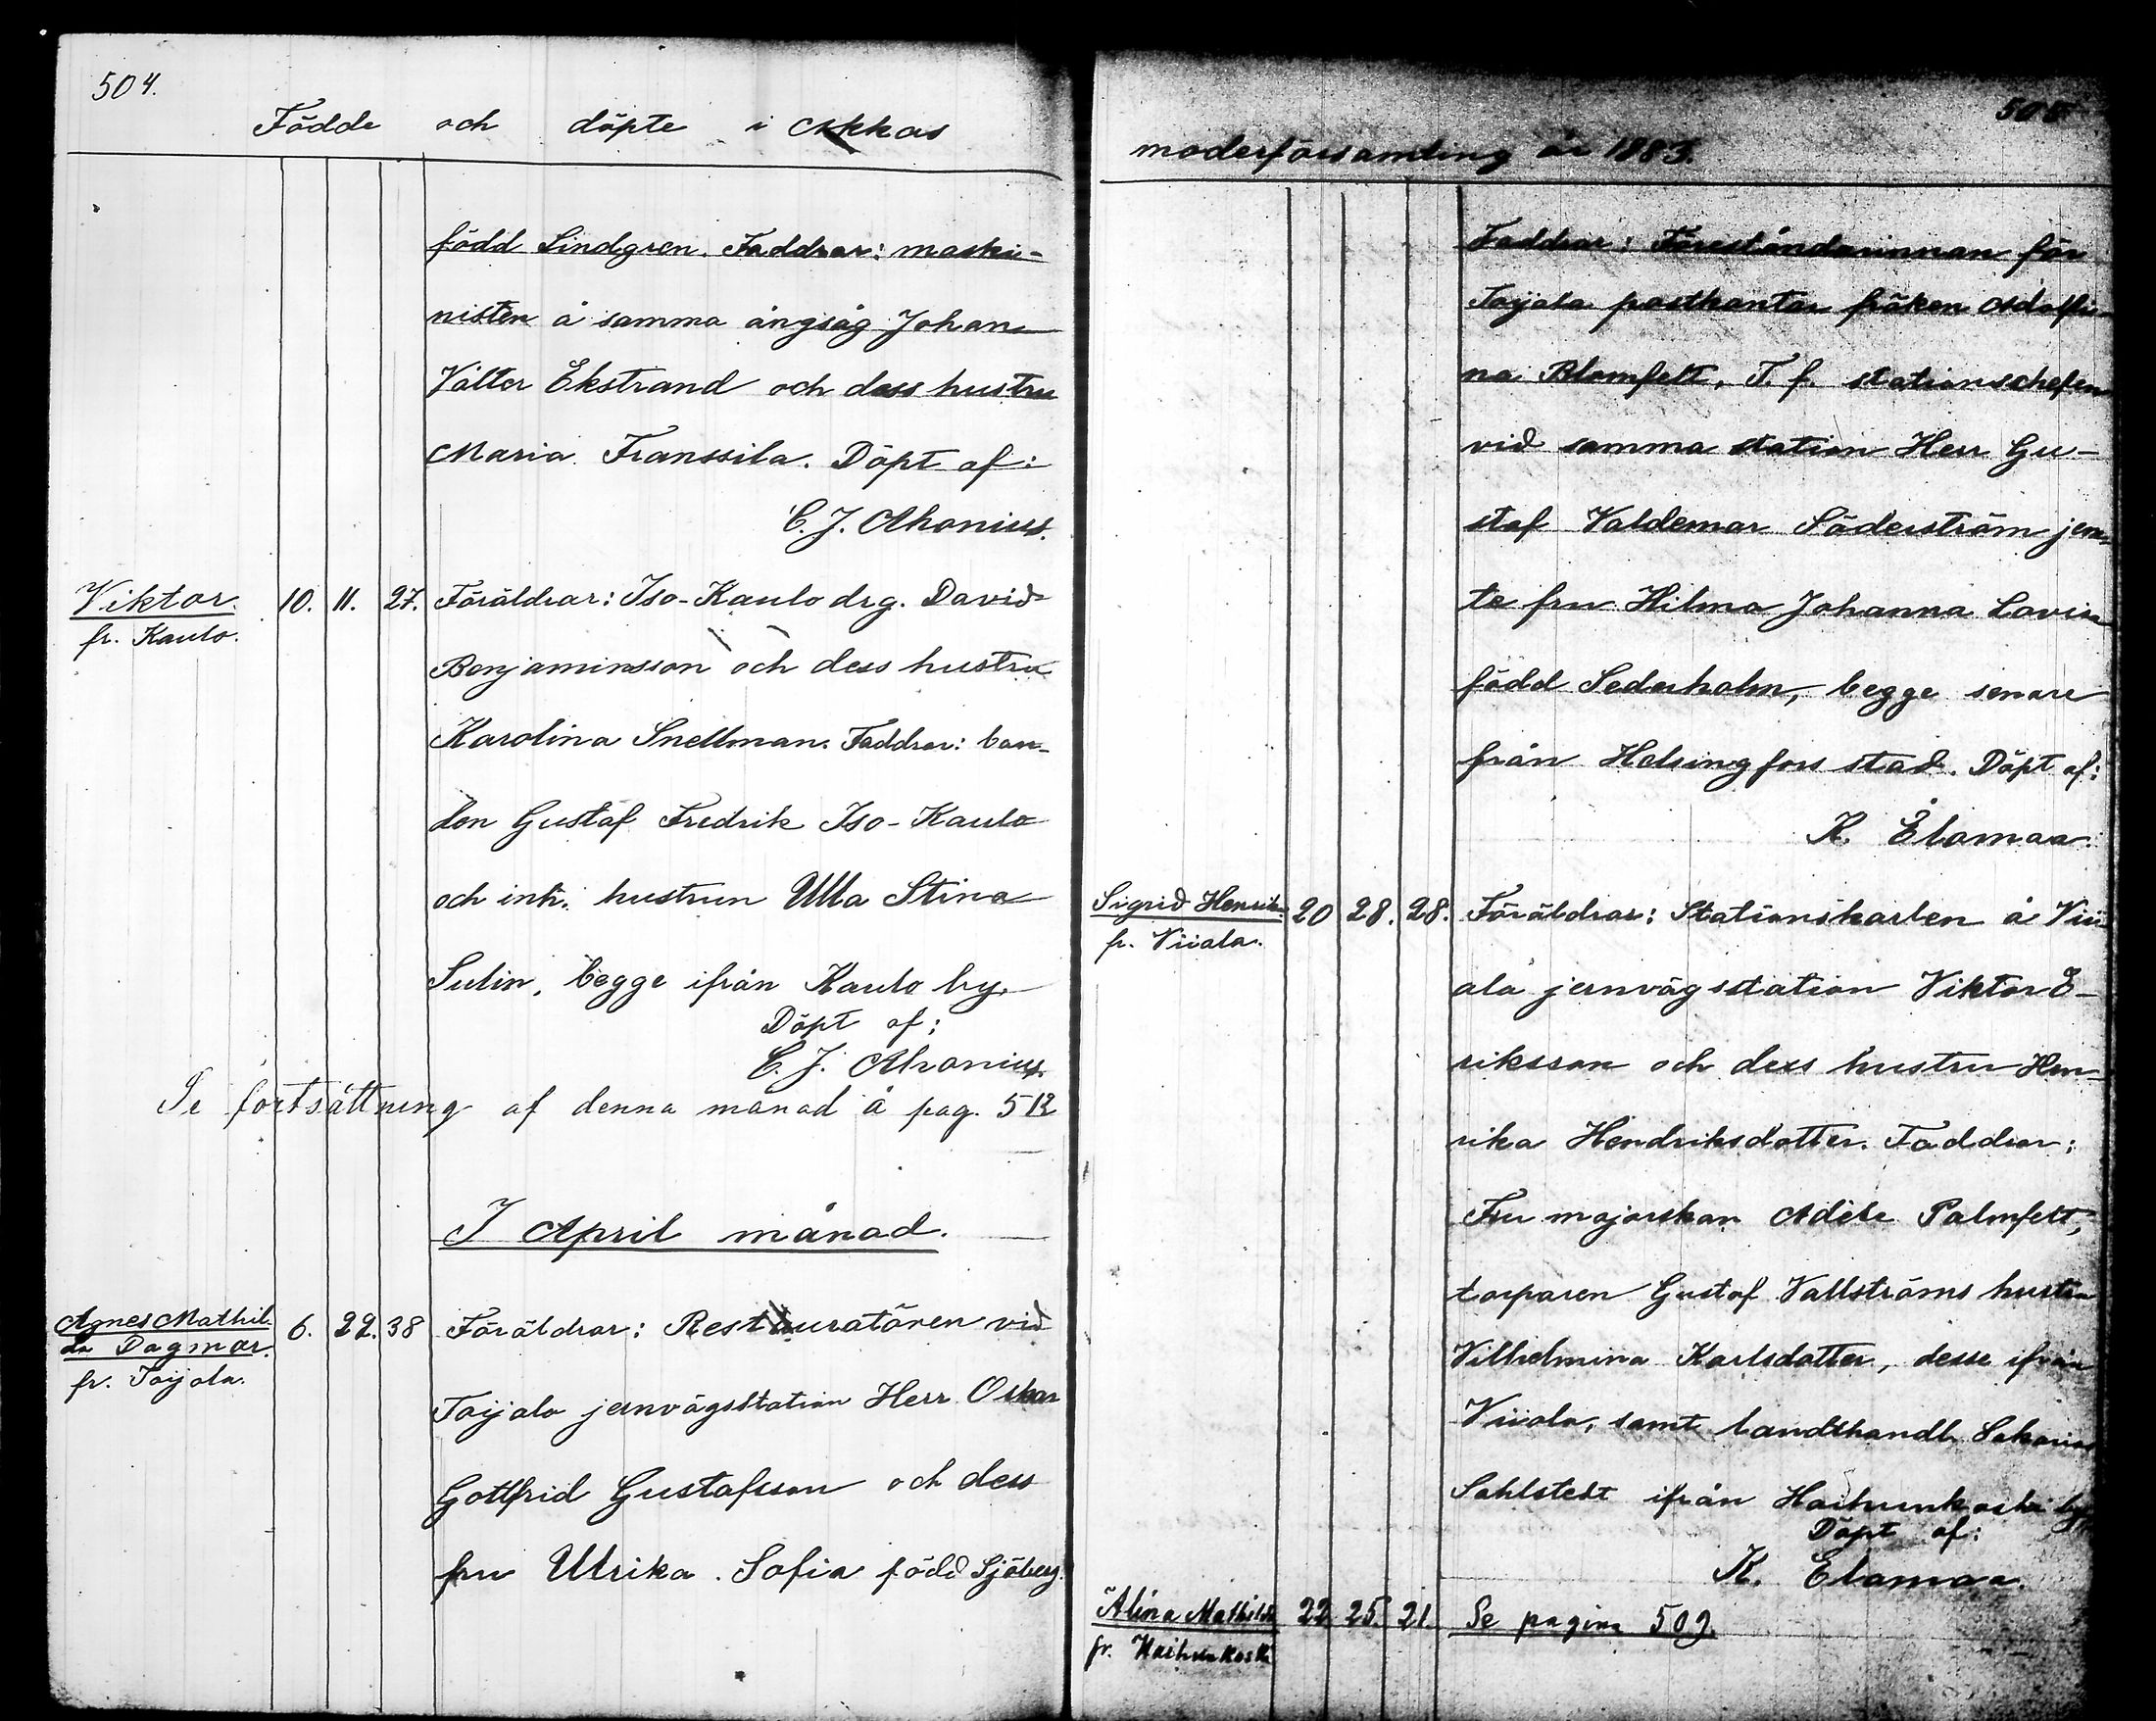 504.
Födde och döpte i Akkas
född Lindgren. Faddrar: maski-
nisten å samma ångsåg Johan
Välter Ekstrand och dess hustru
Maria Franssila. Döpt af:
C. J. Ahonius.
Viktor. 10. 11. 27. Föräldrar: Iso-Kaulo drg. David
fr. Kaulo.
Benjaminsson och dess hustru
Karolina Snellman. Faddrar: bon-
den Gustaf Fredrik Iso-Kaulo
och inh. hustrun Ulla Stina
Sulin, begge ifrån Kaulo by.
Döpt af:
C. J. Ahonius.
Se fortsättning af denna månad å pag. 512
I April månad.
Agnes Mathil- 6. 22. 38 Föräldrar: Restauratören vid
da Dagmar.
fr. Toijala.
Toijala jernvägsstation Herr Oskar
Gottfrid Gustafsson och dess
fru Ulrika Sofia född Sjöberg.
505
moderförsamling år 1883.
Faddrar: Föreståndarinnan för
Toijala postkontor fröken Adolfi-
na Blomfelt, T. f. stationschefen
vid samma station Herr Gu-
staf Valdemar Söderström jem-
te fru Hilma Johanna Lovisa
född Sederholm, begge senare
från Helsingfors stad. Döpt af:
K. Elomaa.
Sigrid Henrika 20 28. 28. Föräldrar: Stationskarlen å Vii-
fr. Viiala.
ala jernvägsstation Viktor E-
riksson och dess hustru Hen-
rika Hendriksdotter. Faddrar:
Fru majorskan Adéle Palmfelt,
torparen Gustaf Vallströms hustru
Vilhelmina Karlsdotter, desse ifrån
Viiala, samt landthandl. Sakarias
Sahlstedt ifrån Haihunkoski by.
Döpt af:
K. Elomaa.
Alina Mathilda 22 25. 21. Se pagina 509.
fr. Haihunkoski